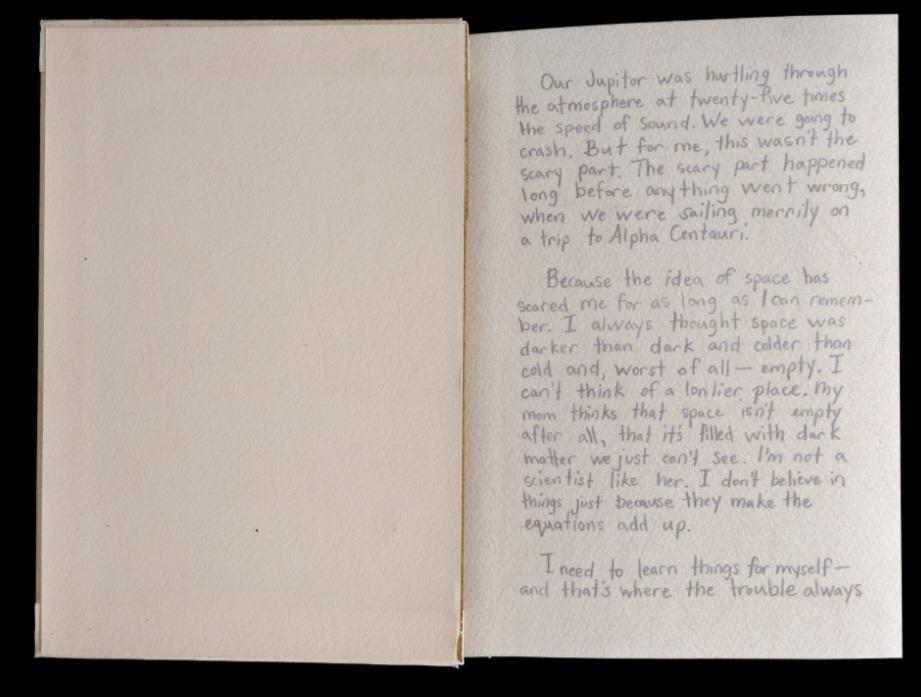 Our Jupitor was hurtling through
the atmosphere at twenty-five times
the speed of sound. We were going to
crash. But for me, this wasn't the
scary part. The scary part happened
long before anything went wrong,
when we were sailing merrily on
a trip to Alpha Centauri.
Because the idea of space has
scared me for as long as I can remem-
ber. I always thought space was
darker than dark and colder than
cold and, worst of all — empty. I
can't think of a lonlier place. My
mom thinks that space isn't empty
after all, that it's filled with dark
matter we just can't see. I'm not a
scientist like her. I don't believe in
things just because they make the
equations add up.
I need to learn things for myself —
and that's where the trouble always